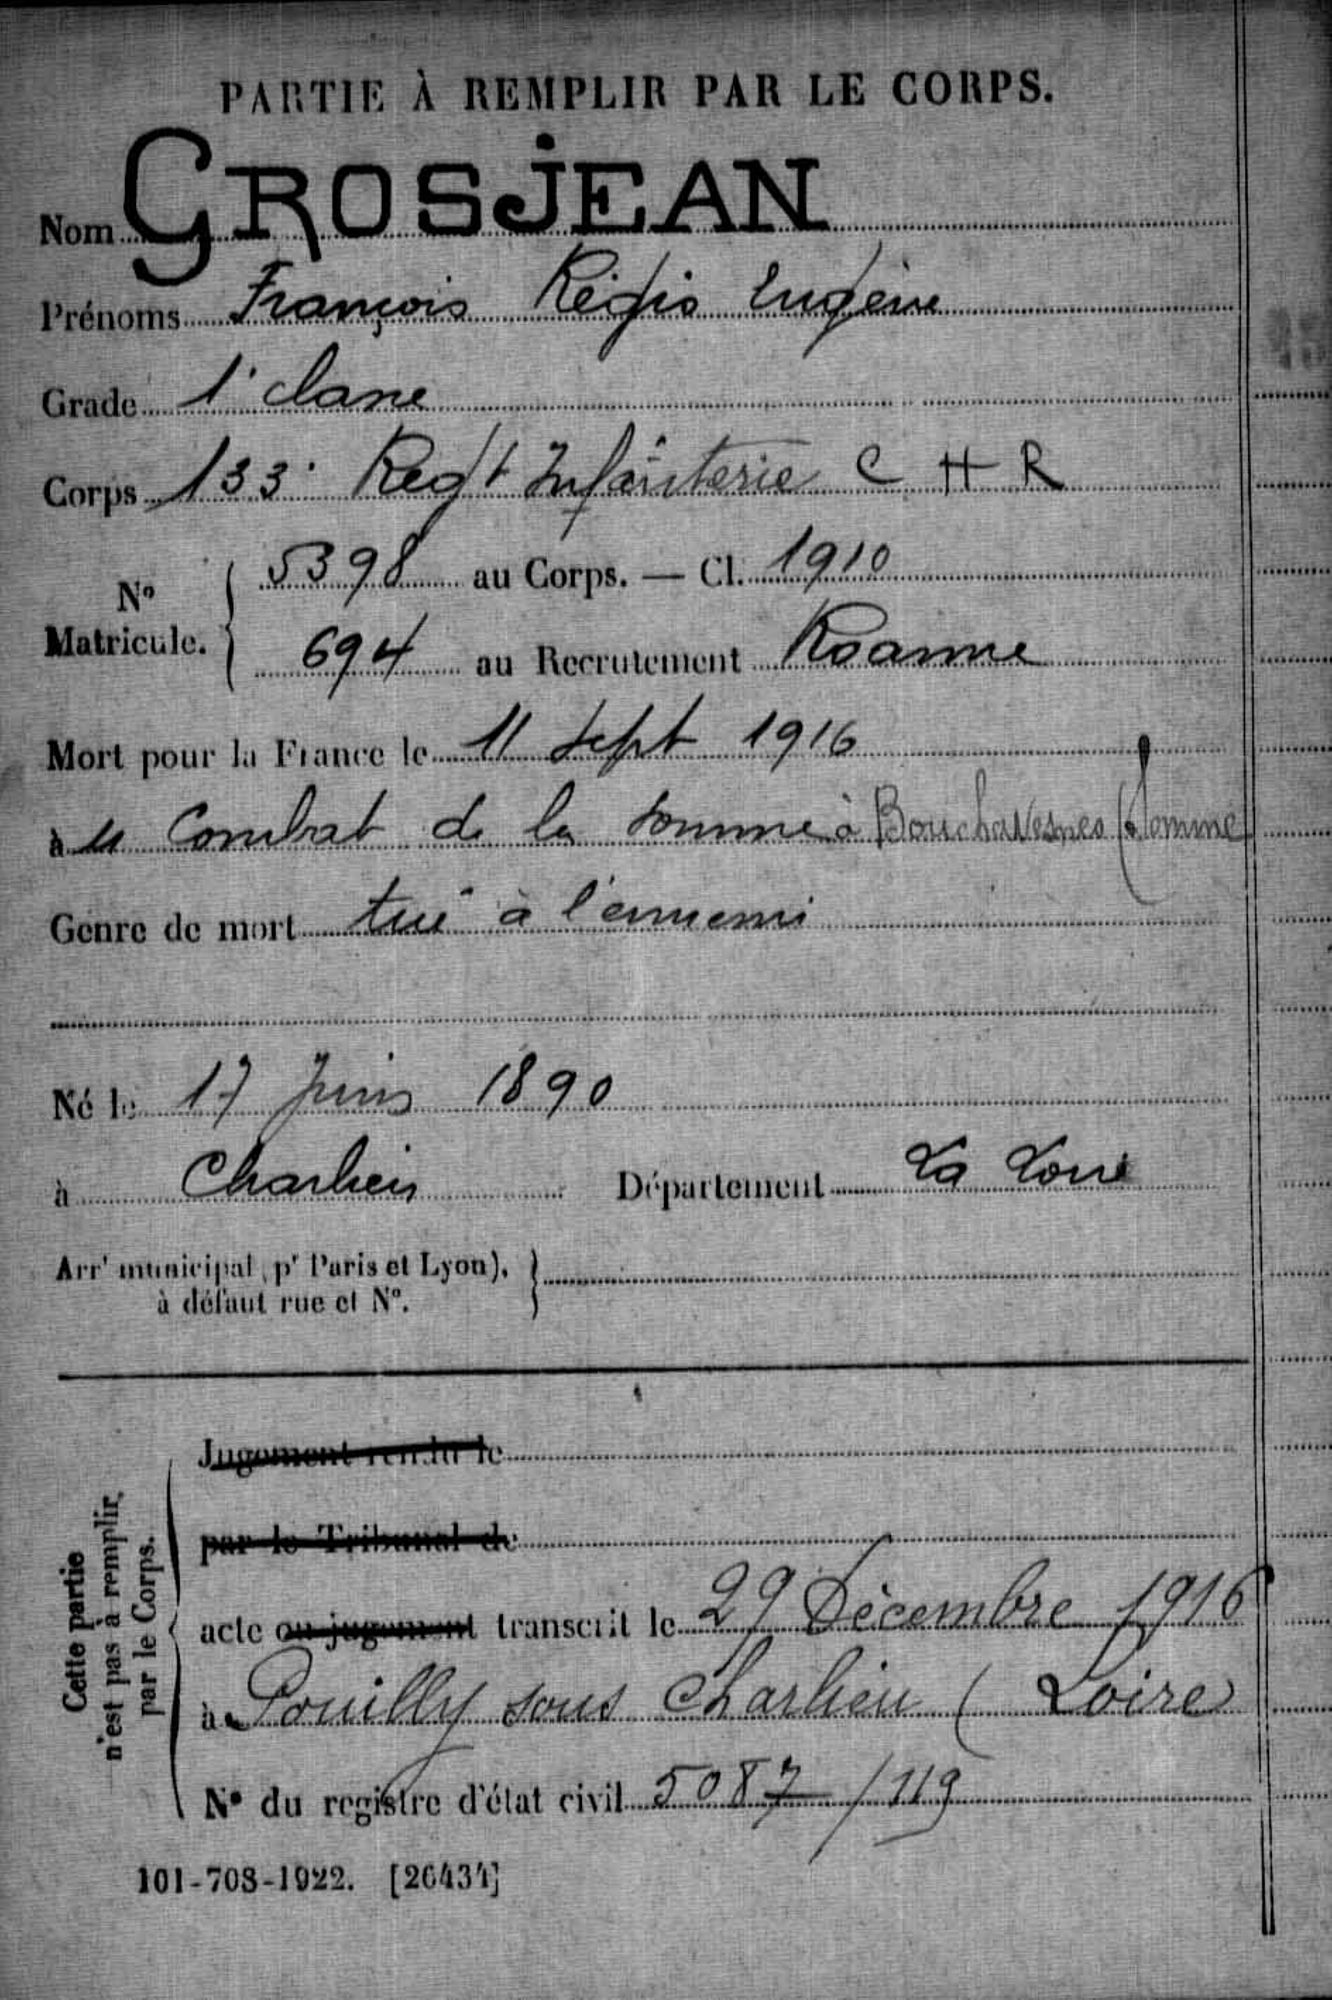 PARTIE À REMPLIR PAR LE CORPS.
Nom GROSJEAN
Prénoms François Régis Eugène
Grade 1e classe
Corps 133e Regt Infanterie C H R
No Matricule. { 5398 au Corps. — Cl. 1910
694 au Recrutement Roanne
Mort pour la France le 11 Sept 1916
à Combat de la Somme à Bouchavesnes (Somme
Genre de mort tué à l'ennemi
Né le 17 Juin 1890
à Charlieu Département La Loire
Arrt municipal (pr Paris et Lyon), }
à défaut rue et No.
Cette partie
n'est pas à remplir
par le Corps.
Jugement rendu le
par le Tribunal de
acte ou jugement transcrit le 29 Décembre 1916
à Pouilly sous Charlieu (Loire)
No du registre d'état civil 5087/119
101-708-1922. [26434]